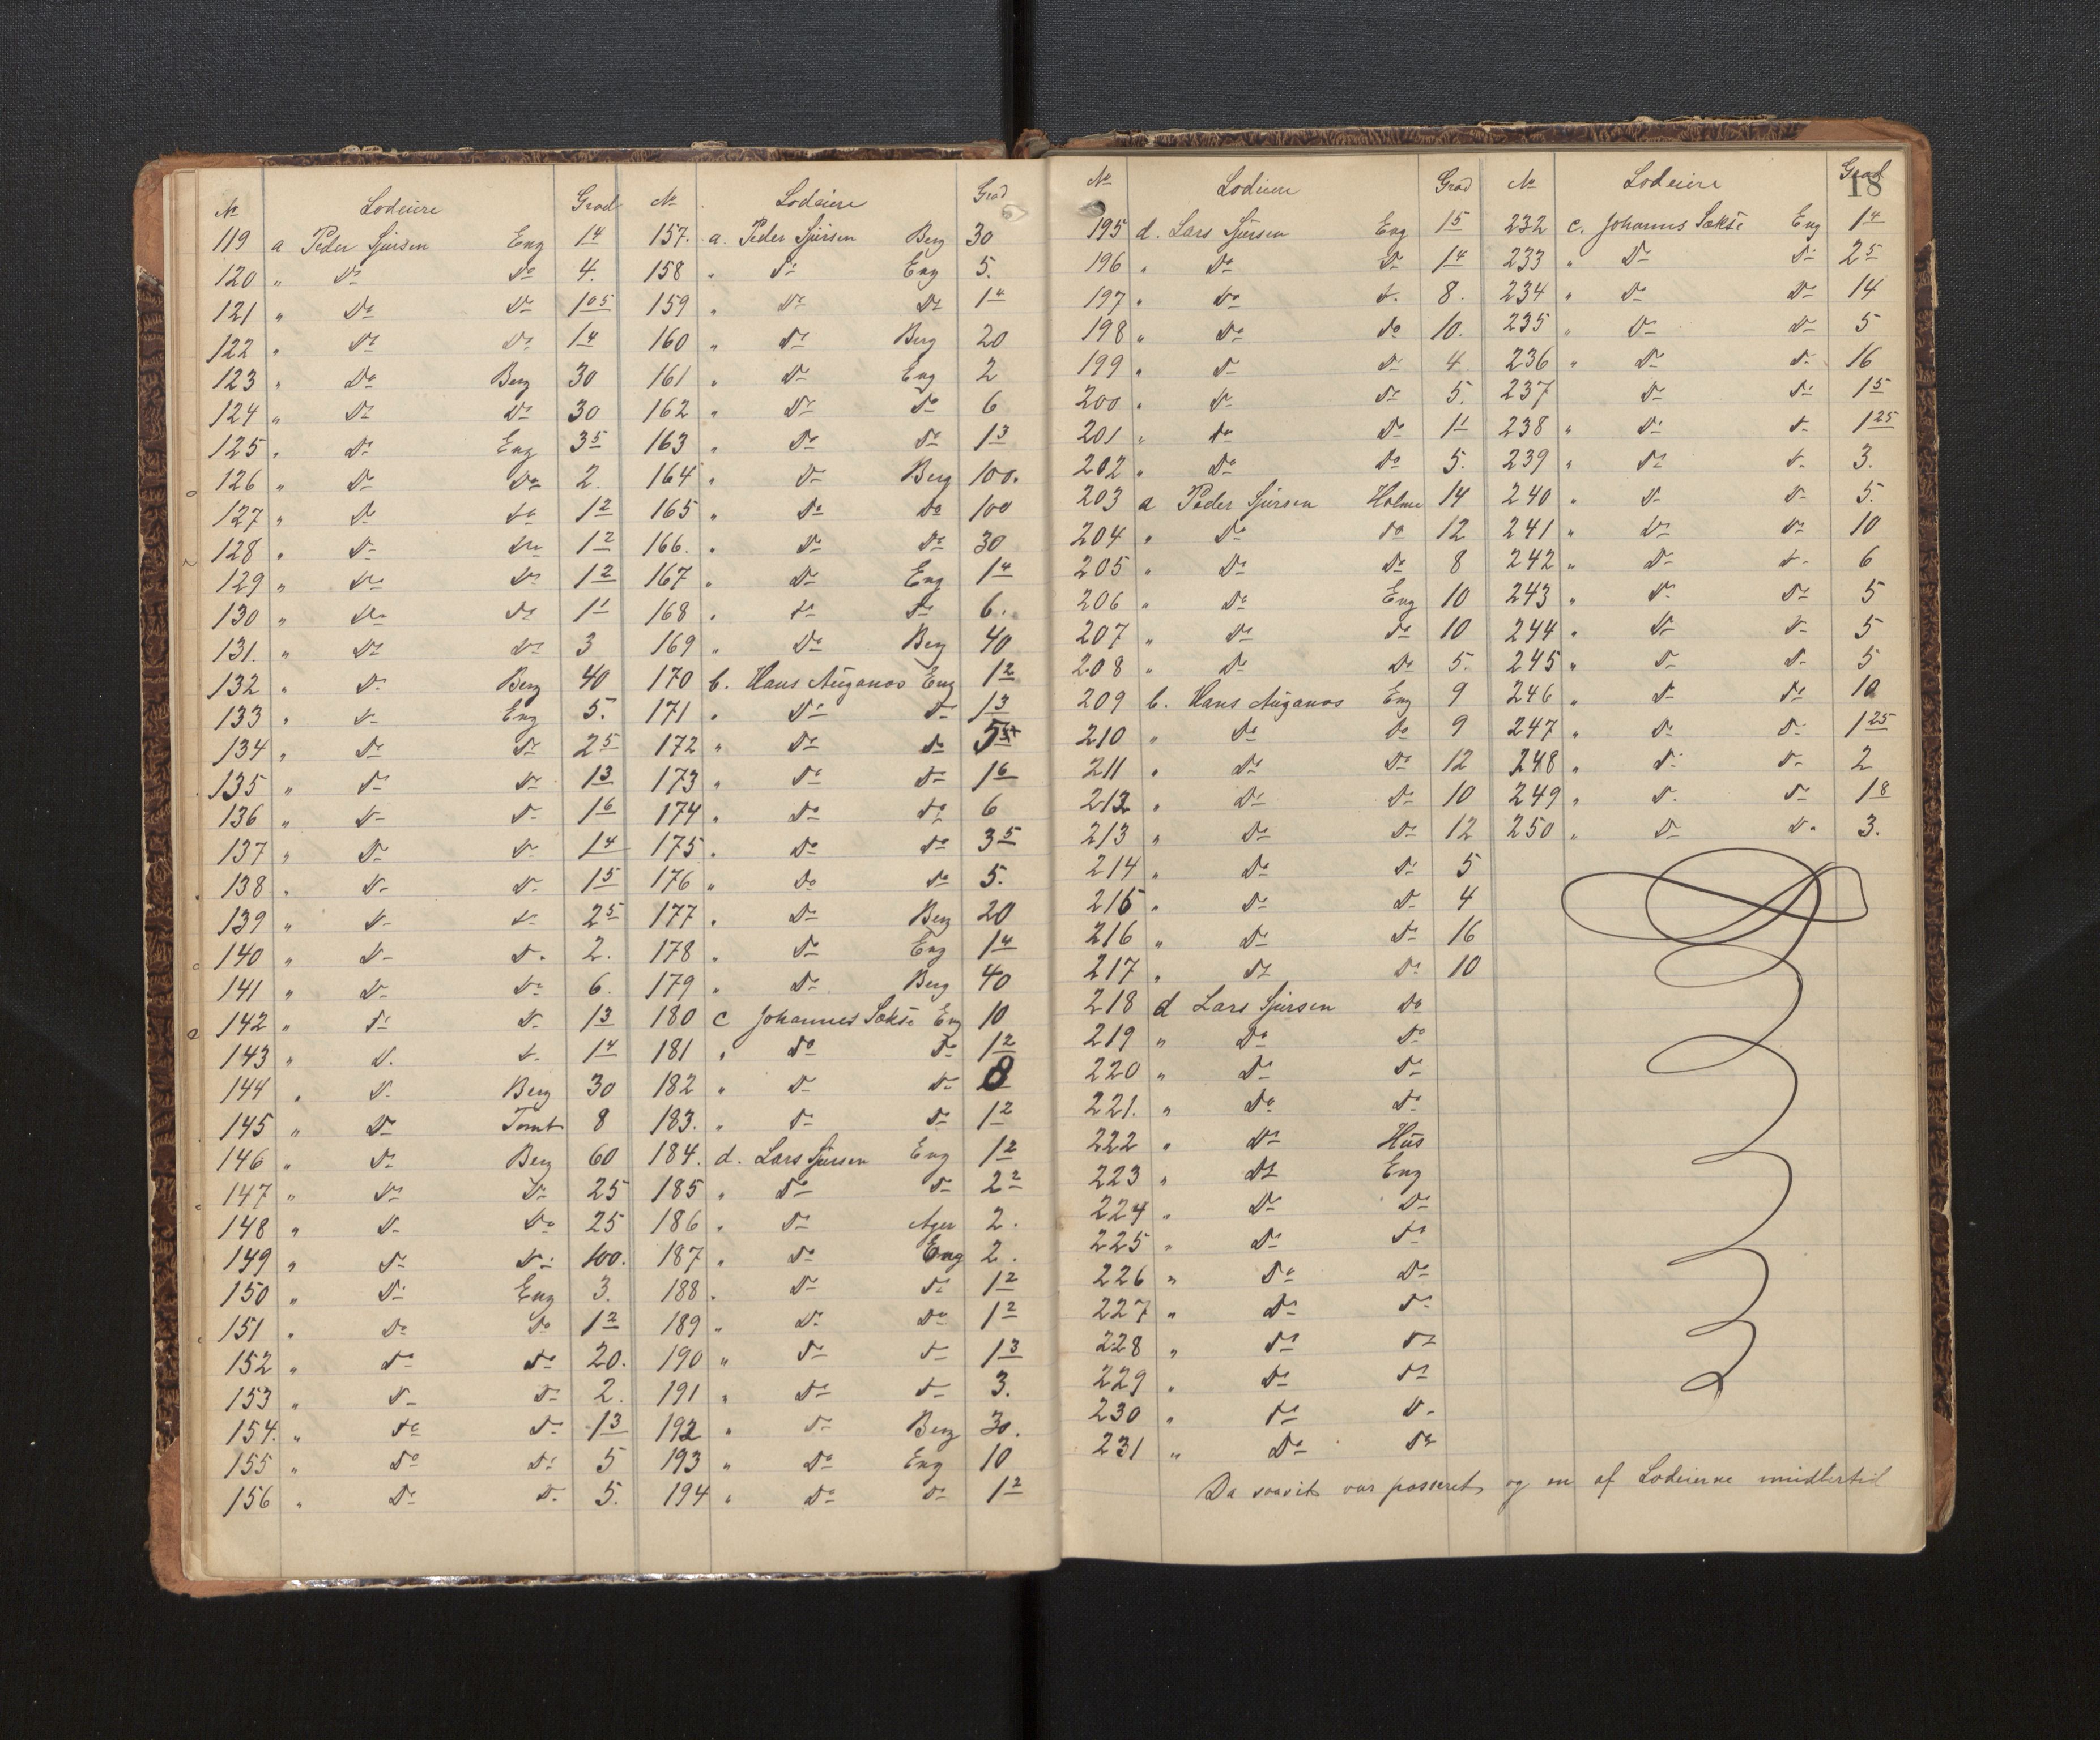 18
No Lodeiere Grad
119 a Peder Sjursen Eng 1 4
120 " Do Do 4.
121 " Do Do 1 05
122 " Do Do 1 4
123 " Do Berg 30
124 " Do Do 30
125 " Do Eng 3 5
126 " Do Do 2.
127 " Do Do 1 2
128 " Do Do 1 2
129 " Do Do 1 2
130 " Do Do 1 1
131. " Do Do 3
132 " Do Berg 40
133 " Do Eng 5.
134 " Do Do 2 5
135 " Do Do 1 3
136 " Do Do 1 6
137 " Do Do 1 4
138 " Do Do 1 5
139 " Do Do 2 5
140 " Do Do 2.
141 " Do Do 6.
142 " Do Do 1 3
143 " Do Do 1 4
144 " Do Berg 30
145 " Do Tomt 8
146 " Do Berg 60
147 " Do Do 25
148 " Do Do 25
149 " Do Do 100.
150 " Do Eng 3.
151 " Do Do 1 2
152 " Do Do 20.
153 " Do Do 2.
154. " Do Do 1 3
155 " Do Do 5
156 " Do Do 5.
No Lodeiere Grad
157. a. Peder Sjursen Berg 30
158 " Do Eng 5.
159 " Do Do 1 4
160 " Do Berg 20
161 " Do Eng 2
162 " Do Do 6
163 " Do Do 1 3
164 " Do Berg 100.
165 " Do Do 100
166. " Do Do 30
167 " Do Eng 1 4
168 " Do Do 6.
169 " Do Berg 40
170 b. Hans Auganæs Eng 1 2
171 " Do Do 1 3
172 " Do Do
173 " Do Do 1 6
174 " Do Do 6
175 " Do Do 3 5
176 " Do Do 5.
177 " Do Berg 20
178 " Do Eng 1 4
179 " Do Berg 40
180 c Johannes Sekse Eng 10
181 " Do Do 1 2
182 " Do Do 8
183. " Do Do 1 2
184. d. Lars Sjursen Eng 1 2
185 " Do Do 2 2
186 " Do Ager 2.
187 " Do Eng 2.
188 " Do Do 1 2
189 " Do Do 1 2
190 " Do Do 1 3
191 " Do Do 3.
192 " Do Berg 30.
193 " Do Eng 10
194 " Do Do 1 2
No Lodeiere Grad
195 d. Lars Sjursen Eng 1 5
196 " Do Do 1 4
197 " Do Do 8.
198 " Do Do 10.
199 " Do Do 4.
200 " Do Do 5.
201 " Do Do 1 1
202 " Do Do 5.
203 a Peder Sjursen Holme 14
204 " Do Do 12
205 " Do Do 8
206 " Do Eng 10
207 " Do Do 10
208 " Do Do 5.
209 b. Hans Auganæs Eng 9
210 " Do Do 9
211 " Do Do 12
212 " Do Do 10
213 " Do Do 12
214 " Do Do 5
215 " Do Do 4
216 " Do Do 16
217 " Do Do 10
218 d Lars Sjursen Do
219 " Do Do
220 " Do Do
221. " Do Do
222 " Do Hus
223 " Do Eng
224 " Do Do
225 " Do Do
226 " Do Do
227 " Do Do
228 " Do Do
229 " Do Do
230 " Do Do
231 " Do Do
No Lodeiere Grad
232 c. Johannes Sekse Eng 1 4
233 " Do Do 2 5
234 " Do Do 14
235 " Do Do 5
236 " Do Do 16
237 Do Do 1 5
238 " Do Do 1 25
239 " Do Do 3.
240 " Do Do 5.
241 " Do Do 10
242 " Do Do 6
243 " Do Do 5
244 " Do Do 5
245 " Do Do 5
246 " Do Do 10
247 " Do Do 1 25
248 " Do Do 2
249 " Do Do 1 8
250 " Do Do 3.
Da saavidt var passeret og en af Lodeierne imidlertid